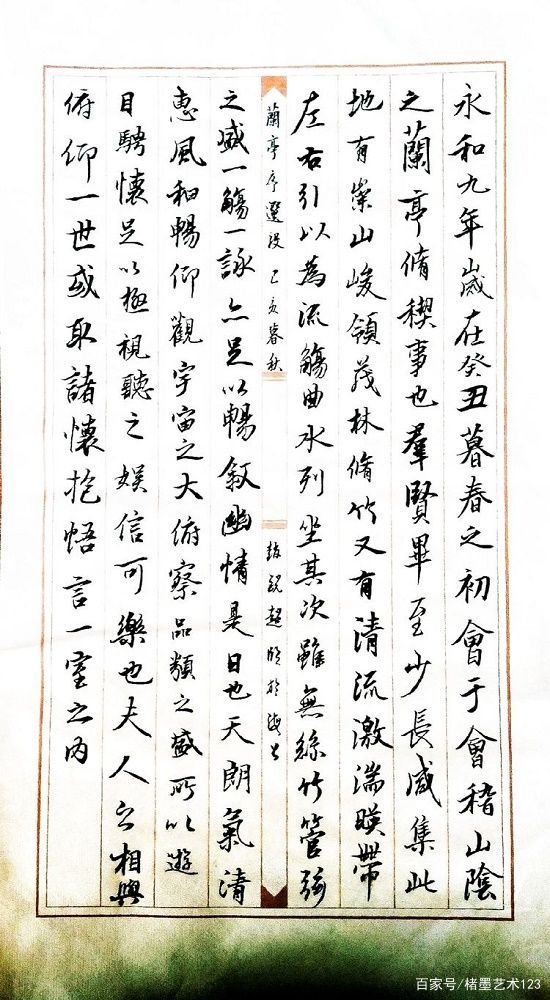 永和九年歲在癸丑暮春之初會于會稽山陰
之蘭亭脩稧事也羣賢畢至少長咸集此
地有崇山峻領茂林脩竹又有清流激湍暎帶
左右引以為流觴曲水列坐其次雖無絲竹管弦
蘭亭序選段 己亥暮秋
之盛一觴一詠亦足以暢敘幽情是日也天朗氣清
惠風和暢仰觀宇宙之大俯察品類之盛所以遊
目騁懷足以極視聽之娛信可樂也夫人之相與
俯仰一世或取諸懷抱悟言一室之內
百家号/楮墨艺术123